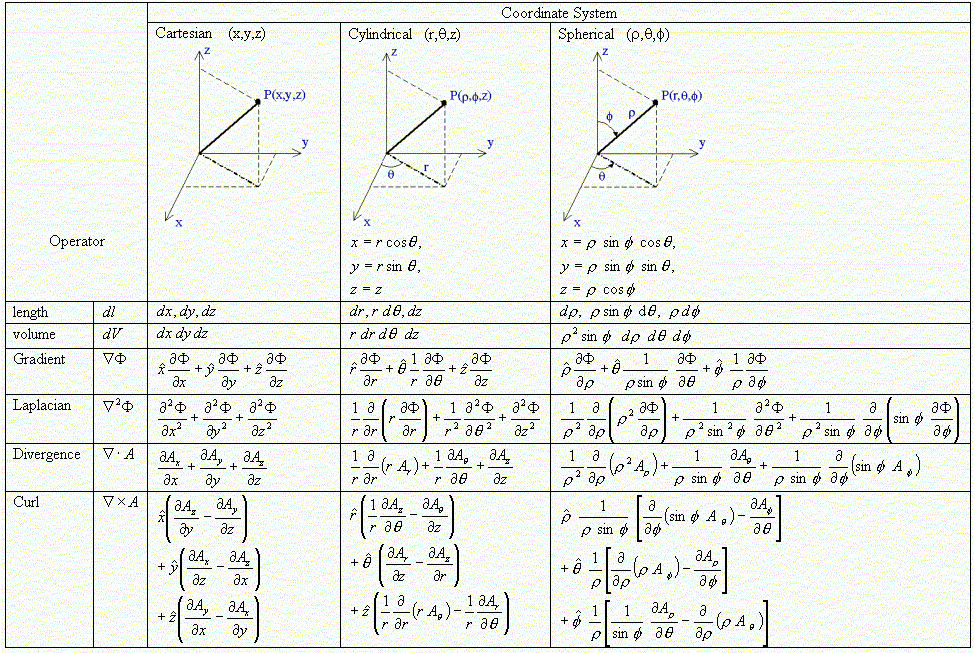 Coordinate System
Cartesian (x,y,z)
z
P(x,y,z)
y
x
Cylindrical (r,θ,z)
z
P(ρ,ϕ,z)
y
θ
r
x
x = r cosθ,
y = r sin θ,
z = z
Spherical (ρ,θ,ϕ)
z
P(r,θ,ϕ)
ϕ
ρ
y
θ
x
x = ρ sin ϕ cosθ,
y = ρ sin ϕ sinθ,
z = ρ cosϕ
Operator
length dl dx, dy, dz dr, r dθ, dz dρ, ρ sinϕ dθ, ρ dϕ
volume dV dx dy dz r dr dθ dz ρ² sinϕ dρ dθ dϕ
Gradient ∇Φ x̂ ∂Φ/∂x + ŷ ∂Φ/∂y + ẑ ∂Φ/∂z r̂ ∂Φ/∂r + θ̂ 1/r ∂Φ/∂θ + ẑ ∂Φ/∂z ρ̂ ∂Φ/∂ρ + θ̂ 1/(ρ sin ϕ) ∂Φ/∂θ + ϕ̂ 1/ρ ∂Φ/∂ϕ
Laplacian ∇²Φ ∂²Φ/∂x² + ∂²Φ/∂y² + ∂²Φ/∂z² 1/r ∂/∂r (r ∂Φ/∂r) + 1/r² ∂²Φ/∂θ² + ∂²Φ/∂z² 1/ρ² ∂/∂ρ (ρ² ∂Φ/∂ρ) + 1/(ρ² sin² ϕ) ∂²Φ/∂θ² + 1/(ρ² sin ϕ) ∂/∂ϕ (sin ϕ ∂Φ/∂ϕ)
Divergence ∇· A ∂Aₓ/∂x + ∂A_y/∂y + ∂A_z/∂z 1/r ∂/∂r (r A_r) + 1/r ∂A_θ/∂θ + ∂A_z/∂z 1/ρ² ∂/∂ρ (ρ² A_ρ) + 1/(ρ sin ϕ) ∂A_θ/∂θ + 1/(ρ sin ϕ) ∂/∂ϕ (sin ϕ A_ϕ)
Curl ∇×A x̂(∂A_z/∂y − ∂A_y/∂z) r̂(1/r ∂A_z/∂θ − ∂A_θ/∂z) ρ̂ 1/(ρ sin ϕ) [∂/∂ϕ (sin ϕ A_θ) − ∂A_ϕ/∂θ]
+ ŷ(∂Aₓ/∂z − ∂A_z/∂x) + θ̂ (∂A_r/∂z − ∂A_z/∂r) + θ̂ 1/ρ [∂/∂ρ (ρ A_ϕ) − ∂A_ρ/∂ϕ]
+ ẑ(∂A_y/∂x − ∂Aₓ/∂y) + ẑ(1/r ∂/∂r (r A_θ) − 1/r ∂A_r/∂θ) + ϕ̂ 1/ρ [1/sin ϕ ∂A_ρ/∂θ − ∂/∂ρ (ρ A_θ)]